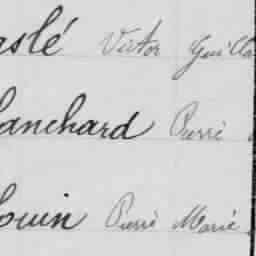 aslé Victor Guilla
lanchard Pierre
ouin Pierre Marie